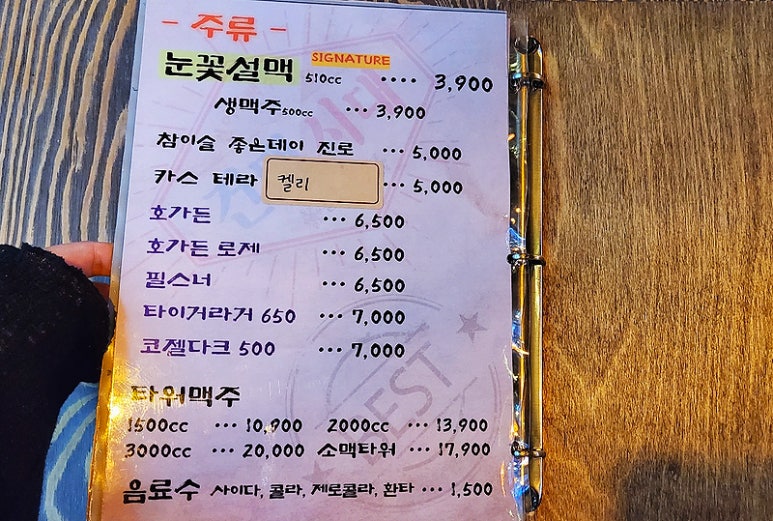 - 주류 -
눈꽃설맥 SIGNATURE 510cc ···· 3,900
생맥주 500cc ··· 3,900
참이슬 좋은데이 진로 ··· 5,000
카스 테라 켈리 ··· 5,000
호가든 ··· 6,500
호가든 로제 ··· 6,500
필스너 ··· 6,500
타이거라거 650 ··· 7,000
코젤다크 500 ··· 7,000
타워맥주
1500cc ··· 10,900 2000cc ··· 13,900
3000cc ··· 20,000 소맥타워 ··· 17,900
음료수 사이다, 콜라, 제로콜라, 환타 ··· 1,500
BEST